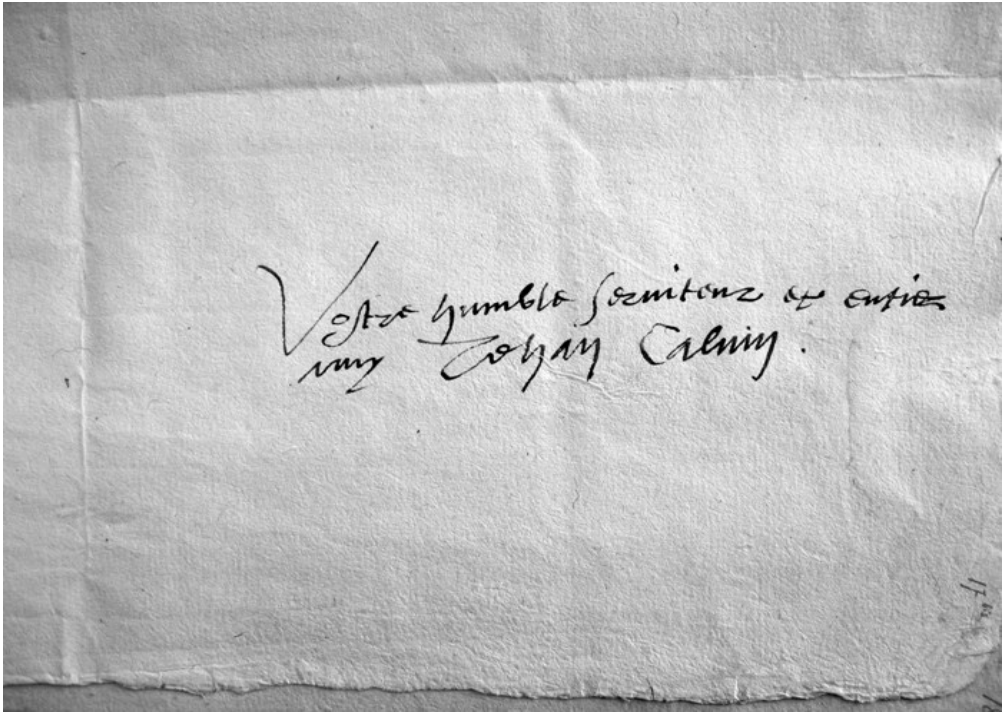 Vostre humble serviteur et entier
amy Jehan Calvin.
17